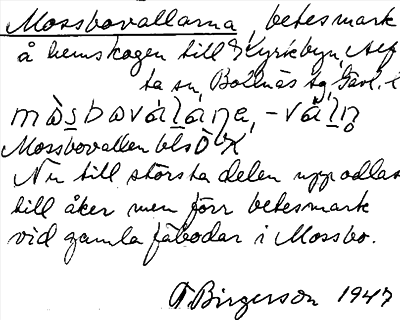 Mossbovallarna, betesmark
å hemskogen till Kyrkbyn, Alf
ta sn, Bollnäs tg, Gävl. l
måsbovál̲ana, -váln̥
Mossbovallen bls ÖbK
Nu till största delen uppodlat
till åker men förr betesmark
vid gamla fäbodar i Mossbo.
T Birgerson 1947